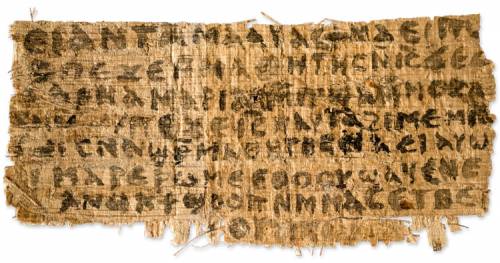 ⲉⲓ ⲁⲛ ⲧⲁⲙⲁⲁⲩ ⲁⲥϯ ⲛⲁⲉⲓ ⲡⲱ
ⲡⲉϫⲉ ⲙⲙⲁⲑⲏⲧⲏⲥ ⲛⲓ̅ⲥ̅ ϫⲉ ⲥ
ⲁⲣⲛⲁ ⲙⲁⲣⲓⲁⲙ ⲙⲡϣⲁ ⲙⲙⲟⲥ
ⲡⲉϫⲉ ⲓ̅ⲥ̅ ⲛⲁⲩ ⲧⲁϩⲓⲙⲉ ⲙⲛ
ⲥⲛⲁϣⲣⲙⲁⲑⲏⲧⲏⲥ ⲛⲁⲉⲓ ⲁⲩⲱ
ⲓ ⲙⲁⲣⲉⲣⲱⲙⲉ ⲉⲑⲟⲟⲩ ϣⲁϥⲉ ⲛⲉ
ⲁⲛⲟⲕ ϯϣⲟⲟⲡ ⲛⲙⲙⲁⲥ ⲉⲧⲃⲉ